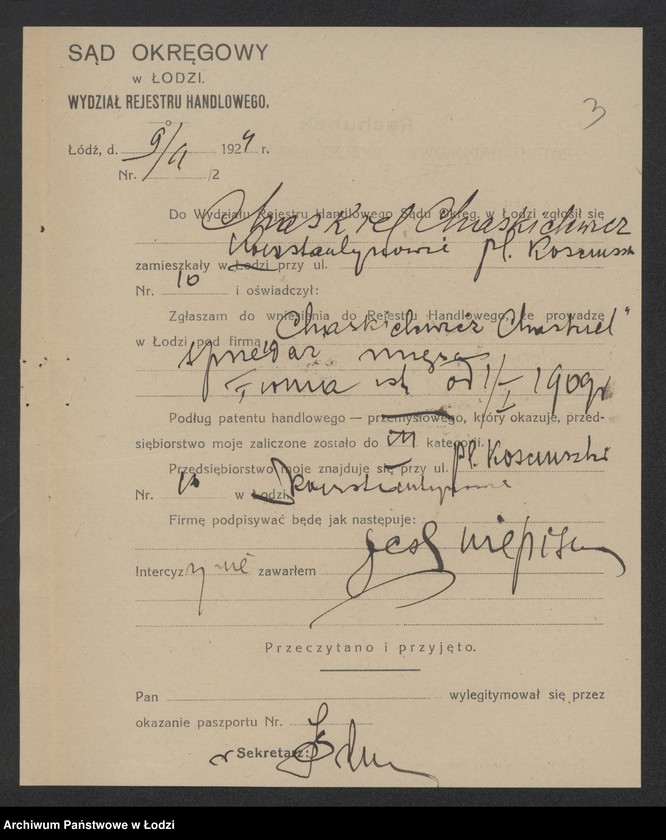 SĄD OKRĘGOWY
w ŁODZI.
WYDZIAŁ REJESTRU HANDLOWEGO.
3
Łódź, d. 9/ 1924 r.
Nr. /2
Do Wydziału Rejestru Handlowego Sądu Okręg. w Łodzi zgłosił się
Chaskiel Chaskielewicz
zamieszkały w Łodzi przy ul.
Konstantynowie pl. Kosciuszki
Nr. 10 i oświadczył:
Zgłaszam do wniesienia do Rejestru Handlowego, że prowadzę
w Łodzi pod firmą
Chaskielewicz Chaskiel"
sprzedaż mięsa
Firma ist. od 1/I 1909 r
Podług patentu handlowego — przemysłowego, który okazuje, przed-
siębiorstwo moje zaliczone zostało do III kategorji.
Przedsiębiorstwo moje znajduję się przy ul. pl. Kosciuszki
Nr. 10 w Łodzi Konstantynowie
Firmę podpisywać będę jak następuje:
jest niepiśm
Intercyzy nie zawarłem
Przeczytano i przyjęto.
Pan wylegitymował się przez
okazanie paszportu Nr.
Sekretarz:
Archiwum Państwowe w Łodzi